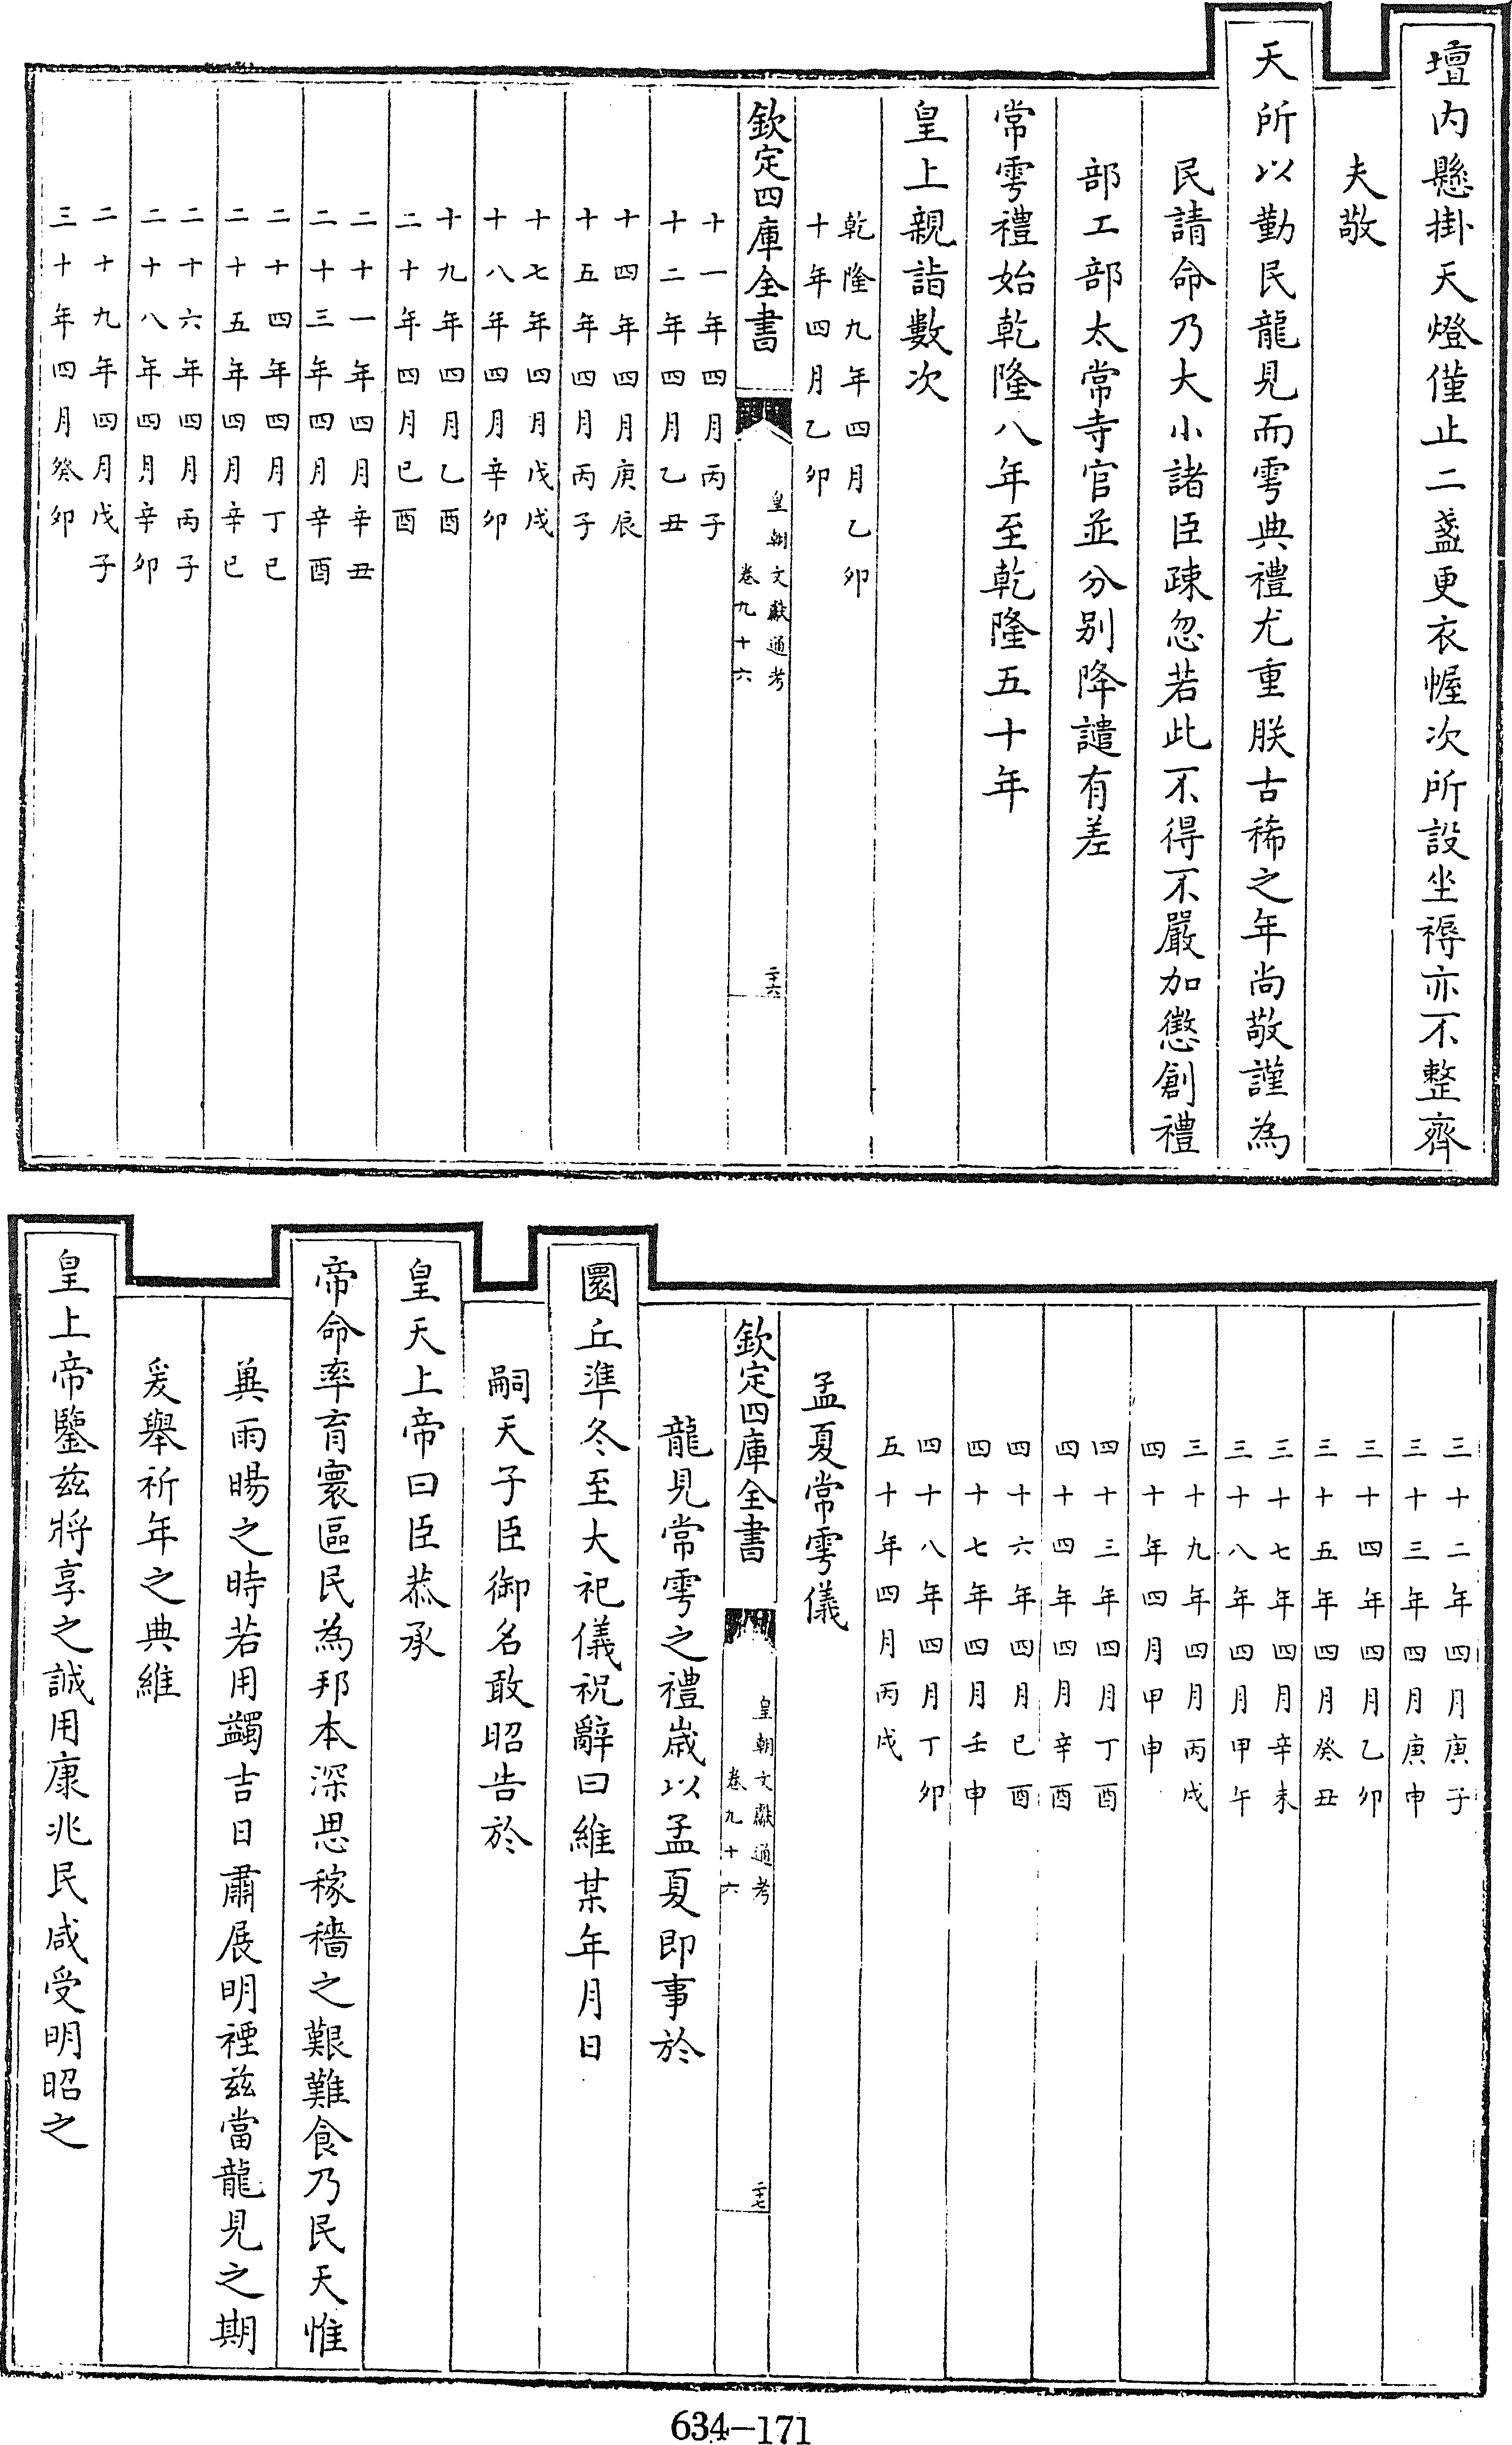 壇内懸掛天燈僅止二盞更衣幄次所設坐褥亦不整齊
夫敬
天所以勤民龍見而雩典禮尤重朕古稀之年尚敬謹為
民請命乃大小諸臣疎忽若此不得不嚴加懲創禮
部工部太常寺官並分别降譴有差
常雩禮始乾隆八年至乾隆五十年
皇上親詣數次
乾隆九年四月乙卯
十年四月乙卯
欽定四庫全書
皇朝文獻通考
卷九十六
二十六
十一年四月丙子
十二年四月乙丑
十四年四月庚辰
十五年四月丙子
十七年四月戊戌
十八年四月辛卯
十九年四月乙酉
二十年四月已酉
二十一年四月辛丑
二十三年四月辛酉
二十四年四月丁巳
二十五年四月辛巳
二十六年四月丙子
二十八年四月辛卯
二十九年四月戊子
三十年四月癸卯
三十二年四月庚子
三十三年四月庚申
三十四年四月乙卯
三十五年四月癸丑
三十七年四月辛未
三十八年四月甲午
三十九年四月丙戌
四十年四月甲申
四十三年四月丁酉
四十四年四月辛酉
四十六年四月已酉
四十七年四月壬申
四十八年四月丁卯
五十年四月丙戌
孟夏常雩儀
欽定四庫全書
皇朝文獻通考
卷九十六
二十七
龍見常雩之禮歲以孟夏即事於
圜丘準冬至大祀儀祝辭曰維某年月日
嗣天子臣御名敢昭告於
皇天上帝曰臣恭承
帝命率育寰區民為邦本深思稼穡之艱難食乃民天惟
兾雨暘之時若用蠲吉日肅展明禋兹當龍見之期
爰舉祈年之典維
皇上帝鑒兹將享之誠用康兆民咸受明昭之
634-171